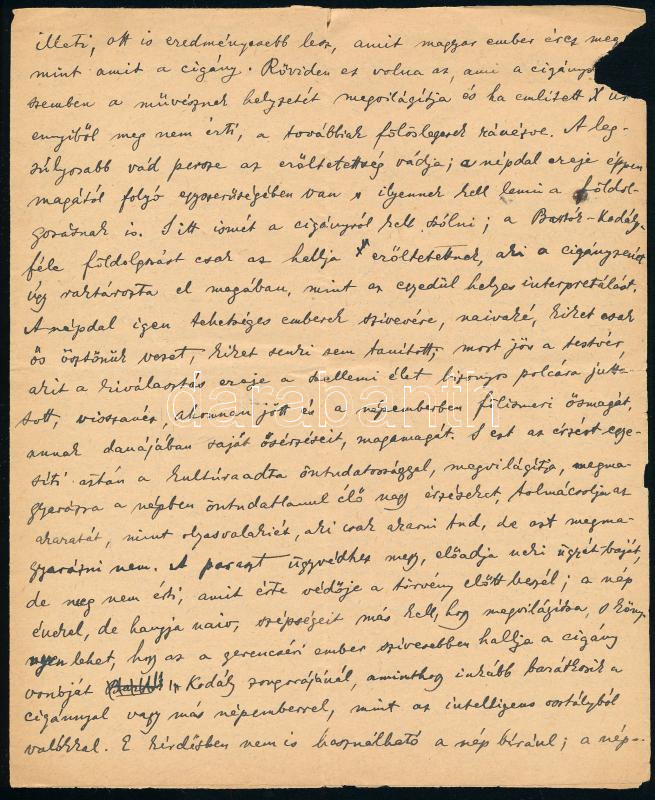 illeti, ott is eredményesebb lesz, amit magyar ember érez meg
mint amit a cigány. Röviden ez volna az, ami a cigány
szemben a művésznek helyzetét megvilágítja és ha említett X úr
ennyiből meg nem érti, a továbbiak fölöslegesek ránézve. A leg-
súlyosabb vád persze az erőltetettség vádja; a népdal ereje éppen
magától folyó egyszerűségében van s ilyennek kell lenni a földol-
gozásnak is. S itt ismét a cigányról kell szólni; a Bartók-Kodály-
féle földolgozást csak az hallja erőltetettnek, aki a cigányzenét
úgy raktározta el magában, mint az egyedül helyes interpretálást.
A népdal igen tehetséges emberek szívevére, naivaké, kiket csak
ős ösztönük vezet, kiket senki sem tanított; most jön a testvér,
akit a kiválasztás ereje a szellemi élet bizonyos polcára jutta-
tott, visszanéz, ahonnan jött és a népemberben fölismeri ősmagát,
annak danájában saját ősérzéseit, magamagát. S ezt az érzést egye-
síti aztán a kultúraadta öntudatossággal, megvilágítja, megma-
gyarázza a népben öntudatlanul élő nagy érzéseket, tolmácsolja az
akaratát, mint olyasvalakiét, aki csak akarni tud, de azt megma-
gyarázni nem. A paraszt ügyvédhez megy, előadja neki ügyét-baját,
de meg nem érti, amit érte védője a törvény előtt beszél; a nép
énekel, de hangja naiv, szépségeit más kell, hogy megvilágítsa. Köny-
nyen lehet, hogy az a gerencséri ember szívesebben hallja a cigány
vonóját Kodály zongorájánál, aminthogy inkább barátkozik a
cigánnyal vagy más népemberrel, mint az intelligens osztályból
valókkal. E kérdésben nem is használható a nép bírául; a nép-
darabanth